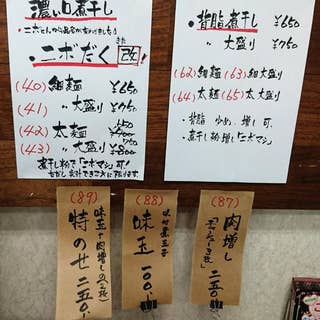 濃い口煮干し
ニボだく改!
(40) 細麺 ¥650
(41) 〃 大盛り ¥750
(42) 太麺
(43) 〃 大盛り ¥800
煮干し粉で「ニボマシ」可!
背脂煮干し ¥650
〃 大盛り ¥750
(62) 細麺 (63) 細大盛り
(64) 太麺 (65) 太大盛り
・背脂 少め、増し 可、
・煮干し粉増し「ニボマシ」
(89)
味玉+肉増し
特のせ 二五〇、
(88)
味付煮玉子
味玉 一〇〇、
(87)
肉増し
二五〇、